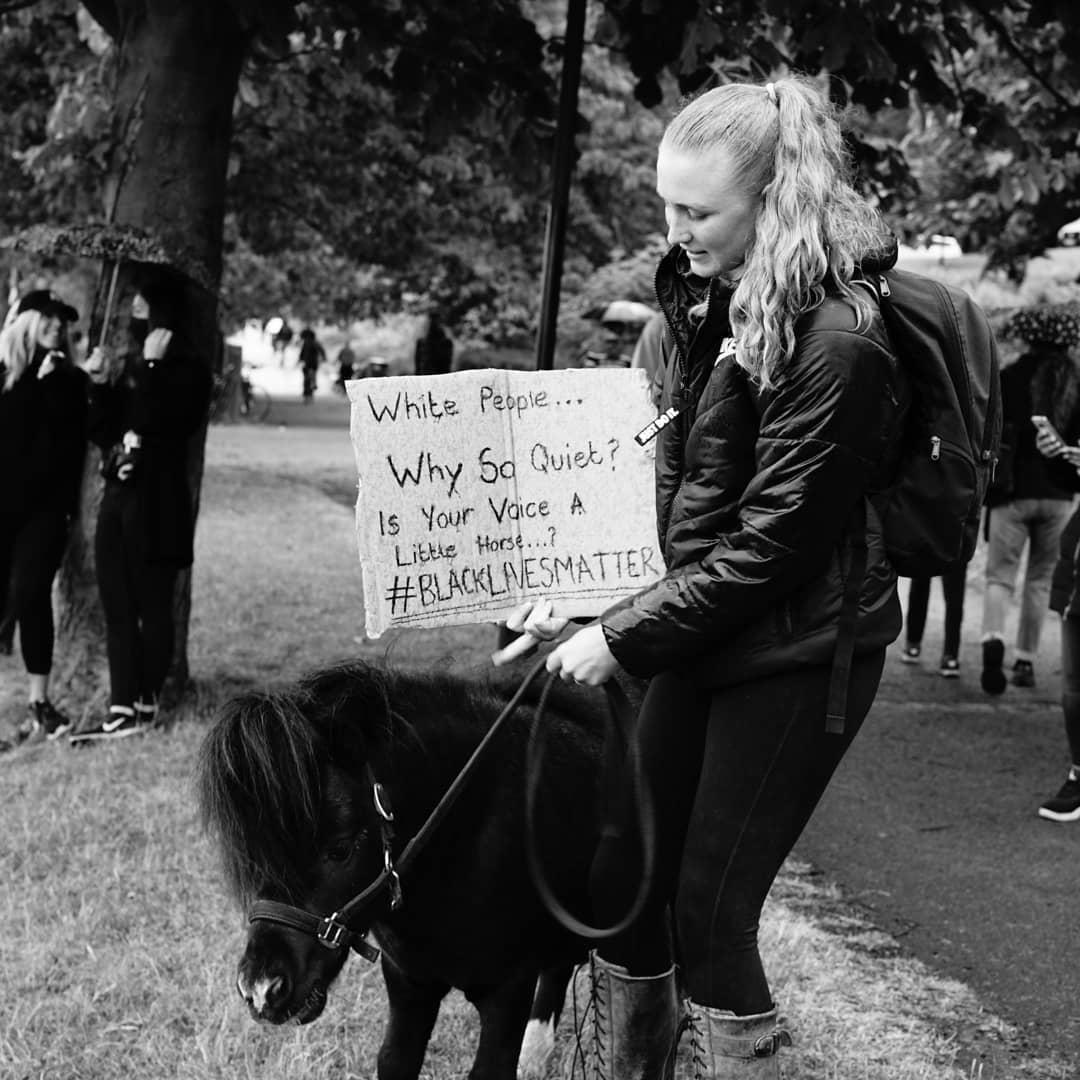 White People...
Why So Quiet?
Is Your Voice A
Little Horse...?
#BLACKLIVESMATTER
JUST DO IT.